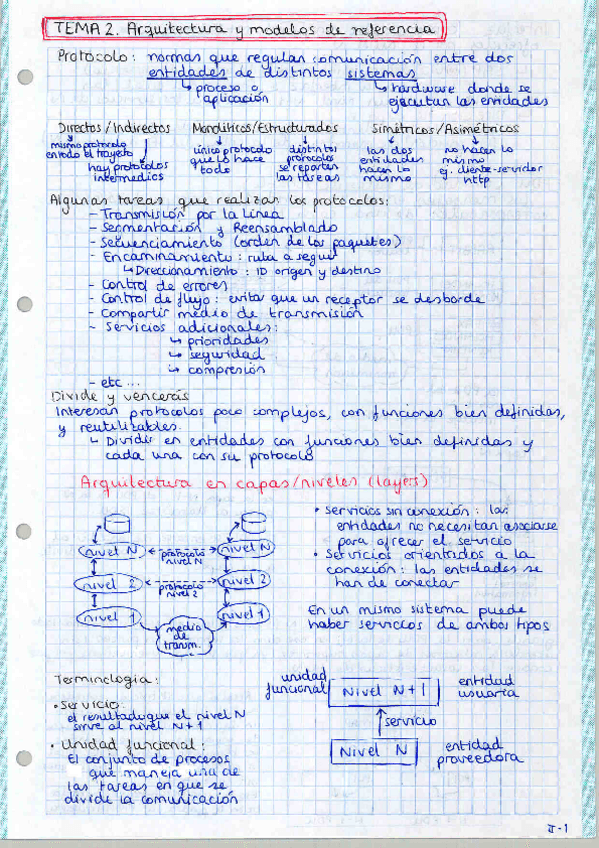 TEMA 2. Arquitectura y modelos de referencia
Protocolo: normas que regulan comunicación entre dos
entidades de distintos sistemas
↳ proceso o
aplicación
↳ hardware donde se
ejecutan las entidades
Directos / Indirectos
mismo protocolo
en todo el trayecto
hay protocolos
intermedios
Monolíticos/Estructurados
único protocolo
que lo hace
todo
distintos
protocolos
se reparten
las tareas
Simétricos / Asimétricos
las dos
entidades
hacen lo
mismo
no hacen lo
mismo
eg. cliente-servidor
http
Algunas tareas que realizan los protocolos:
- Transmisión por la línea
- Segmentación y Reensamblado
- Secuenciamiento (orden de los paquetes)
- Encaminamiento: ruta a seguir
↳ Direccionamiento: ID origen y destino
- Control de errores
- Control de flujo: evita que un receptor se desborde
- Compartir medio de transmisión
- Servicios adicionales:
↳ prioridades
↳ seguridad
↳ compresión
- etc ...
Divide y vencerás
Interesan protocolos poco complejos, con funciones bien definidas,
y reutilizables.
↳ Dividir en entidades con funciones bien definidas y
cada una con su protocolo
Arquitectura en capas/niveles (layers)
nivel N
protocolo
nivel N
nivel N
nivel 2
protocolo
nivel 2
nivel 2
nivel 1
medio
de
transm.
nivel 1
• Servicios sin conexión: las
entidades no necesitan asociarse
para ofrecer el servicio
• Servicios orientados a la
conexión: las entidades se
han de conectar
En un mismo sistema puede
haber servicios de ambos tipos
Terminología:
• Servicio:
el resultado que el nivel N
sirve al nivel N+1
• Unidad funcional:
El conjunto de procesos
que maneja una de
las tareas en que se
divide la comunicación
unidad
funcional
Nivel N+1
entidad
usuaria
servicio
Nivel N
entidad
proveedora
II-1